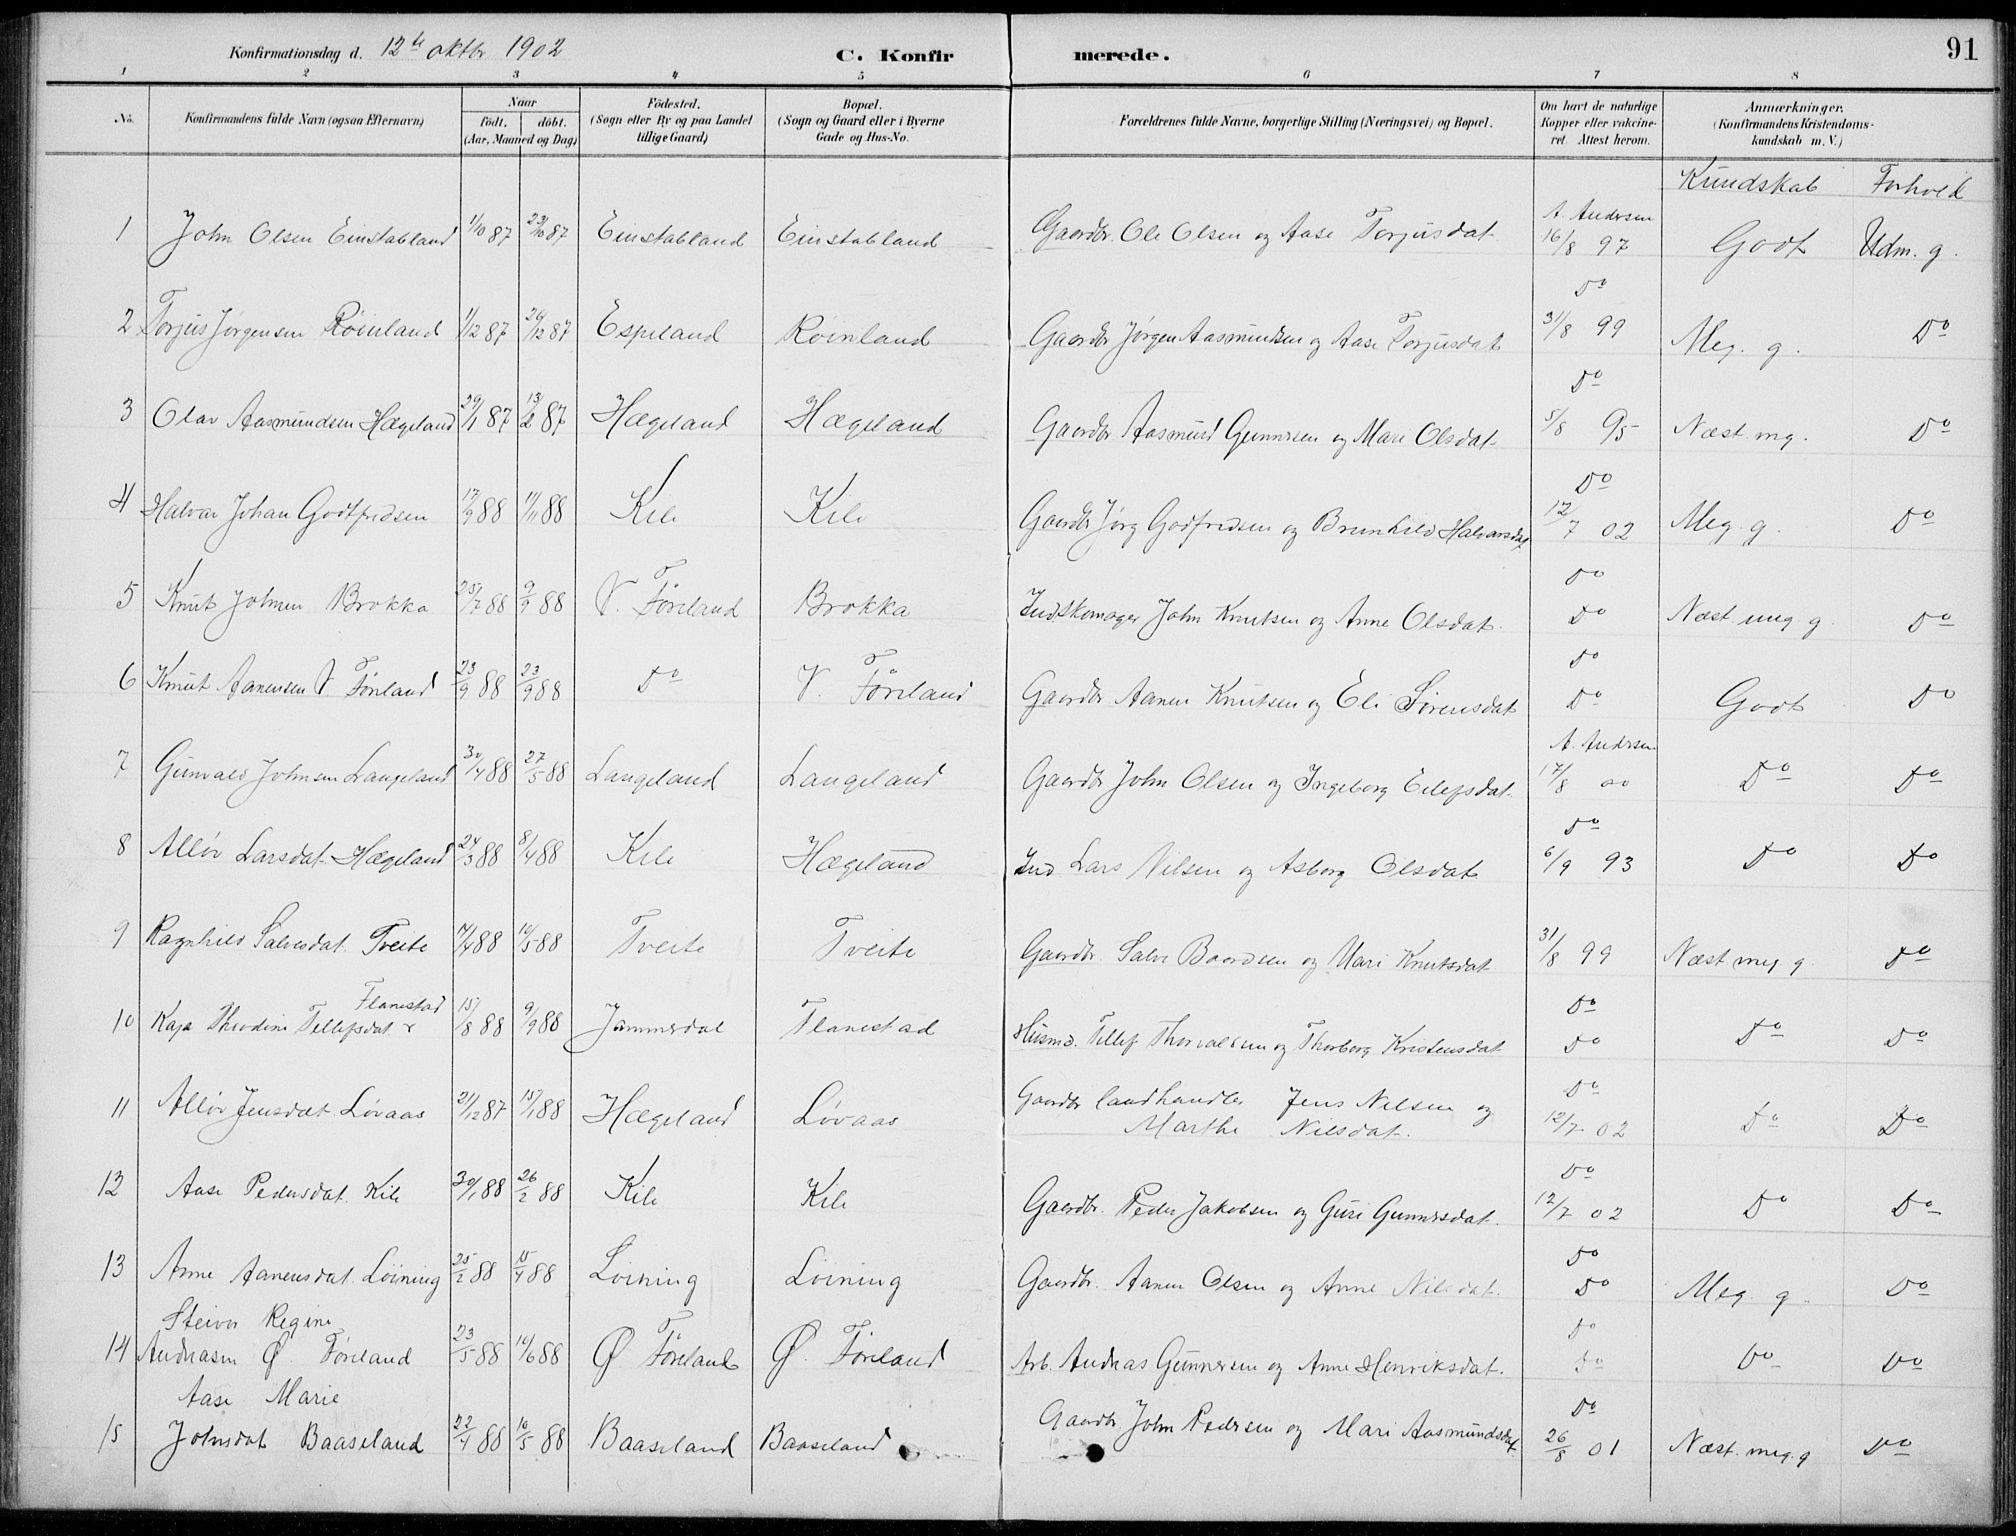 Konfirmationsdag d. 12te oktbr 1902 C. Konfirmerede. 91
1 2 3 4 5 6 7 8
No. Konfirmandens fulde Navn (ogsaa Efternavn) Naar födt. döbt. (Aar, Maaned og Dag) Födested. (Sogn eller By og paa Landet tillige Gaard) Bopæl. (Sogn og Gaard eller i Byerne Gade og Hus-No. Forældrenes fulde Navne, borgerlige Stilling (Næringsvei) og Bopæl. Om havt de naturlige Kopper eller vakcineret. Attest herom. Anmærkninger. (Konfirmandens Kristendomskundskab m. V.)
Kundskab Forhold
1 John Olsen Einstabland 1/10 87 23/10 87 Einstabland Einstabland Gaardbr. Ole Olsen og Aase Torjusdat A. Andersen 16/8 97 Godt Udm. g.
2 Torjus Jörgensen Röinland 1/12 87 26/12 87 Espeland Röinland Gaardbr Jørgen Aasmundsen og Aase Torjusdat Do 31/8 99 Meg. g. Do
3 Olav Aasmundsen Hægeland 29/1 87 13/2 87 Hægeland Hægeland Gaardbr. Aasmund Gunnersen og Mari Olsdat Do 5/8 95 Næst. mg. Do
4 Halvor Johan Godtfredsen 17/9 88 11/11 88 Kile Kile Gaardbr Jörg Godfredsen og Brunhild Halvorsdat Do 12/7 02 Meg. g. Do
5 Knut Johnsen Brokka 25/7 88 9/9 88 V. Föreland Brokka Ind. Skomager John Knutsen og Anne Olsdat. Do Do Næst. meg g Do
6 Knut Aanensen V Föreland 23/9 88 23/9 88 Do V. Föreland Gaardbr Aanen Knutsen og Eli Sörensdat Do Do Godt Do
7 Gunvald Johnsen Langeland 30/4 88 27/5 88 Langeland Langeland Gaardbr John Olsen og Ingeborg Eilefsdat A. Andersen 17/8 00 Do Do
8 Alløv Larsdat Hægeland 24/3 88 8/4 88 Kile Hægeland Ind Lars Nilsen og Asborg Olsdat Do 6/9 93 Do Do
9 Ragnhild Salvesdat. Tveite 7/4 88 10/5 88 Tveite Tveite Gaardbr. Salve Baardsen og Mari Knutsdat 31/8 99 Næst meg. g. Do
10 Kaja Theodine Tellefsdat Flanestad 15/8 88 9/9 88 Jammerdal Flanestad Husmd. Tellef Thorvaldsen og Thorborg Kristensdat Do Do Do Do
11 Alløv Jensdat Lövaas 21/12 87 15/1 88 Hægeland Lövaas Gaardbr landhandler Jens Nilsen og
Marthe Nilsdat. Do 12/7 02 Do Do
12 Aase Pedersdat. Kile 30/1 88 26/2 88 Kile Kile Gaardbr. Peder Jakobsen og Guri Gunnersdat. Do 12/7 02 Do Do
13 Anne Aanensdat Löining 25/2 88 15/4 88 Löining Löining Gaardbr. Aanen Olsen og Anne Nilsdat. Do Do Meg. g. Do
Steivor Regine
14 Andreasen Ø. Föreland 23/5 88 10/6 88 Ø Föreland Ø. Föreland Arb. Andreas Gunnersen og Anne Henriksdat. Do Do Do Do
Aase Marie
15 Johnsdat Baaseland 22/4 88 10/5 88 Baaseland Baaseland Gaardbr. John Pedersen og Mari Aasmundsdat Do 26/8 01 Næst. meg. g Do